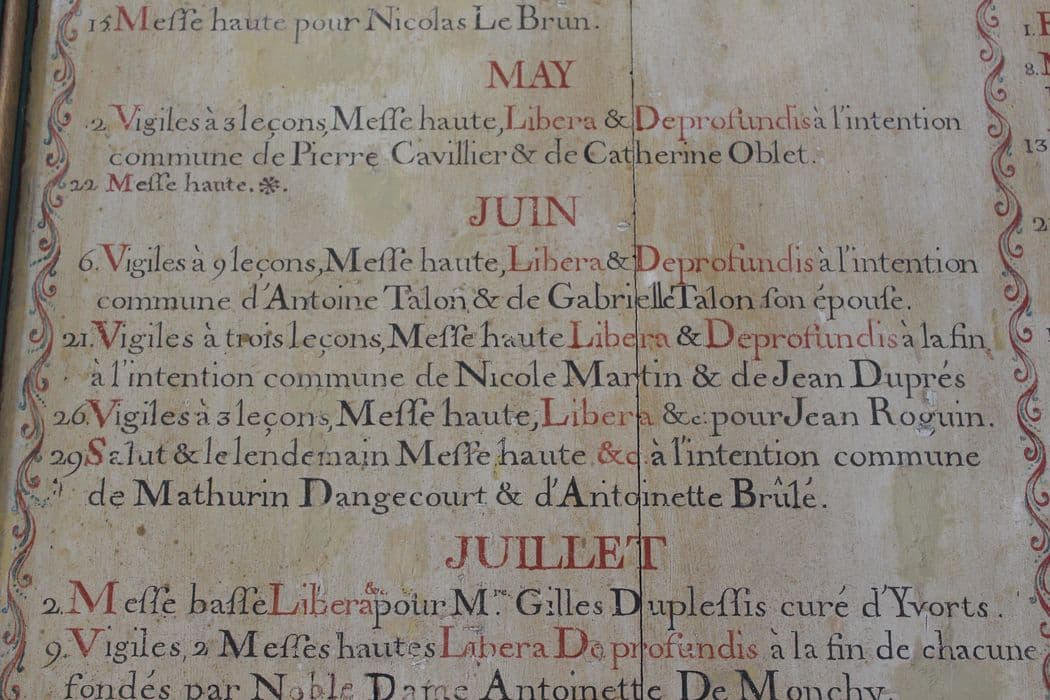 15. Meſſe haute pour Nicolas Le Brun.
MAY
2. Vigiles à 3 leçons, Meſſe haute, Libera & De profundis à l'intention
commune de Pierre Cavillier & de Catherine Oblet.
22 Meſſe haute. ✻.
JUIN
6. Vigiles à 9 leçons, Meſſe haute, Libera & De profundis à l'intention
commune d'Antoine Talon, & de Gabrielle Talon ſon épouſe.
21. Vigiles à trois leçons, Meſſe haute Libera & De profundis à la fin,
à l'intention commune de Nicole Martin & de Jean Duprés
26. Vigiles à 3 leçons, Meſſe haute, Libera &c. pour Jean Roguin.
29 Salut & le lendemain Meſſe haute &c. à l'intention commune
de Mathurin Dangecourt & d'Antoinette Brûlé.
JUILLET
2. Meſſe baſſe Libera &c. pour M.re Gilles Dupleſſis curé d'Yvorts.
9. Vigiles, 2 Meſſes hautes Libera De profundis à la fin de chacune
fondés par Noble Dame Antoinette De Monchy.
1.
8.
13
2